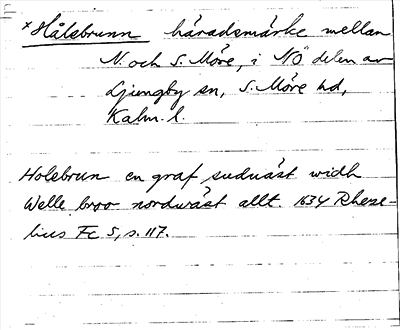 *Hålebrunn häradsmärke mellan
N. och S. Möre, i NÖ delen av
Ljungby sn, S. Möre hd,
Kalm. l.
Holebrun en graf suduäst widh
Welle broo norduäst allt. 1634 Rheze-
lius Fc 5, s. 117.